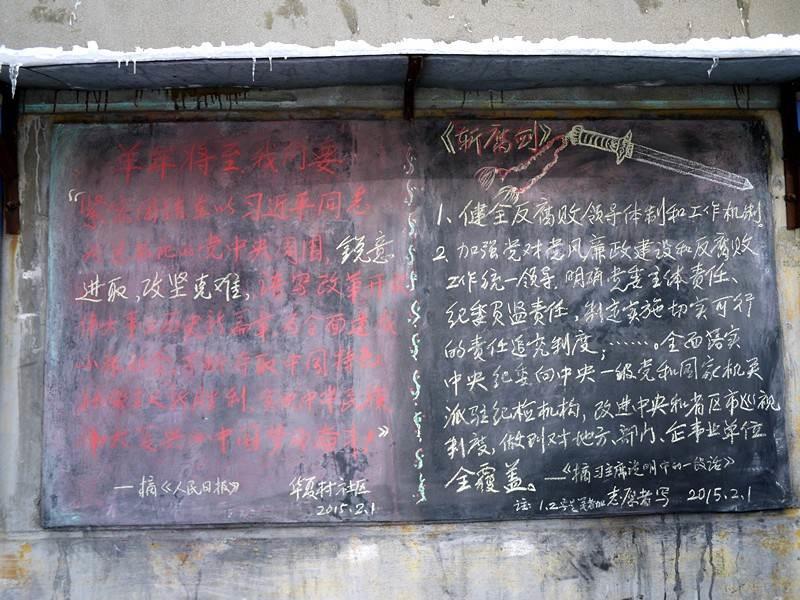 羊年将至,我们要
"紧密团结在以习近平同志
为总书记的党中央周围,锐意
进取,攻坚克难,谱写改革开放
伟大事业历史新篇章,为全面建成
小康社会,不断夺取中国特色
社会主义新胜利,实现中华民族
伟大复兴的中国梦而奋斗!"
—摘《人民日报》
华夏村社区
2015.2.1
《斩腐剑》
1、健全反腐败领导体制和工作机制。
2、加强党对党风廉政建设和反腐败
工作统一领导,明确党委主体责任、
纪委员监责任,制定实施切实可行
的责任追究制度;……。全面落实
中央纪委向中央一级党和国家机关
派驻纪检机构,改进中央和省区市巡视
制度,做到对地方、部门、企事业单位
全覆盖。—《摘习主席说明中的一段话》
注:1.2号是
志愿者写 2015.2.1